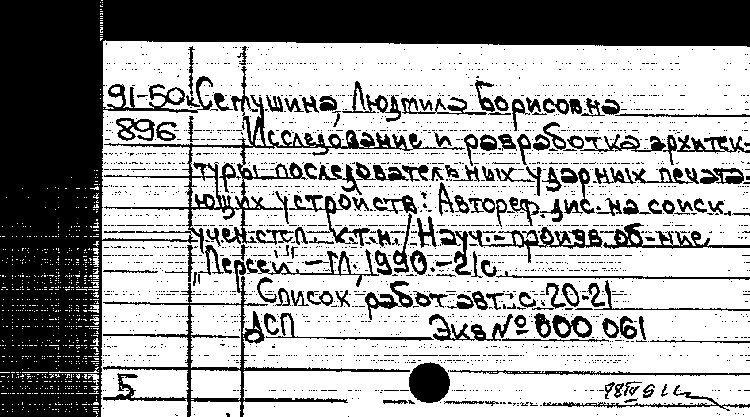 91-50к Сетушина, Людмила Борисовна
896 Исследование и разработка архитек-
туры последовательных ударных печата-
ющих устройств: Автореф. дис. на соиск.
учен. степ. к.т.н. / Науч.-произв. об-ние
"Персей". - М. 1990. - 21с.
Список работ авт.: с. 20-21
ДСП Экз № 000 061
5